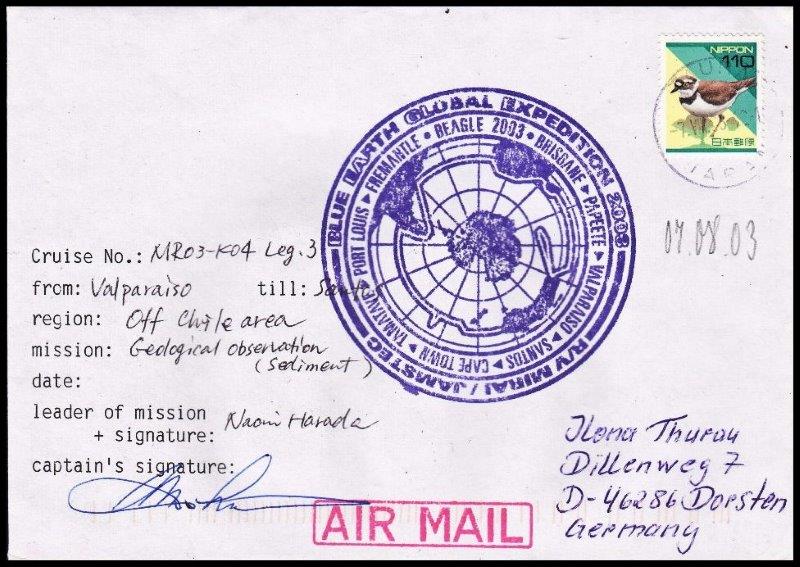 NIPPON
110
日本郵便
BLUE EARTH GLOBAL EXPEDITION 2003
R/V MIRAI / JAMSTEC
BEAGLE 2003 • BRISBANE ▸ PAPEETE ▸ VALPARAISO ▸ SANTOS ▸ CAPE TOWN ▸ TAMATAVE ▸ PORT LOUIS ▸ FREMANTLE •
07.08.03
Cruise No.: MR03-K04 Leg.3
from: Valparaiso till: Santos
region: Off Chile area
mission: Geological observation
(Sediment)
date:
leader of mission Naomi Harada
+ signature:
captain's signature:
AIR MAIL
Ilona Thurau
Dillenweg 7
D-46286 Dorsten
Germany